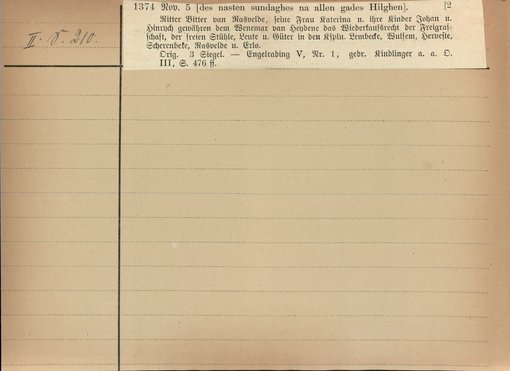 II. S. 210.
1374 Nov. 5 [des nasten sundaghes na allen gades Hilghen]. [2
Ritter Bitter van Rasvelde, seine Frau Katerina u. ihre Kinder Johan u.
Hinryck gewähren dem Wenemar van Heydene das Wiederkaufsrecht der Freigraf-
schaft, der freien Stühle, Leute u. Güter in den Kspln. Lembecke, Wulfem, Hervefte,
Scherenbeke, Rasvelde u. Erlo.
Orig. 3 Siegel. — Engelrading V, Nr. 1, gedr. Kindlinger a. a. O.
III, S. 476 ff.